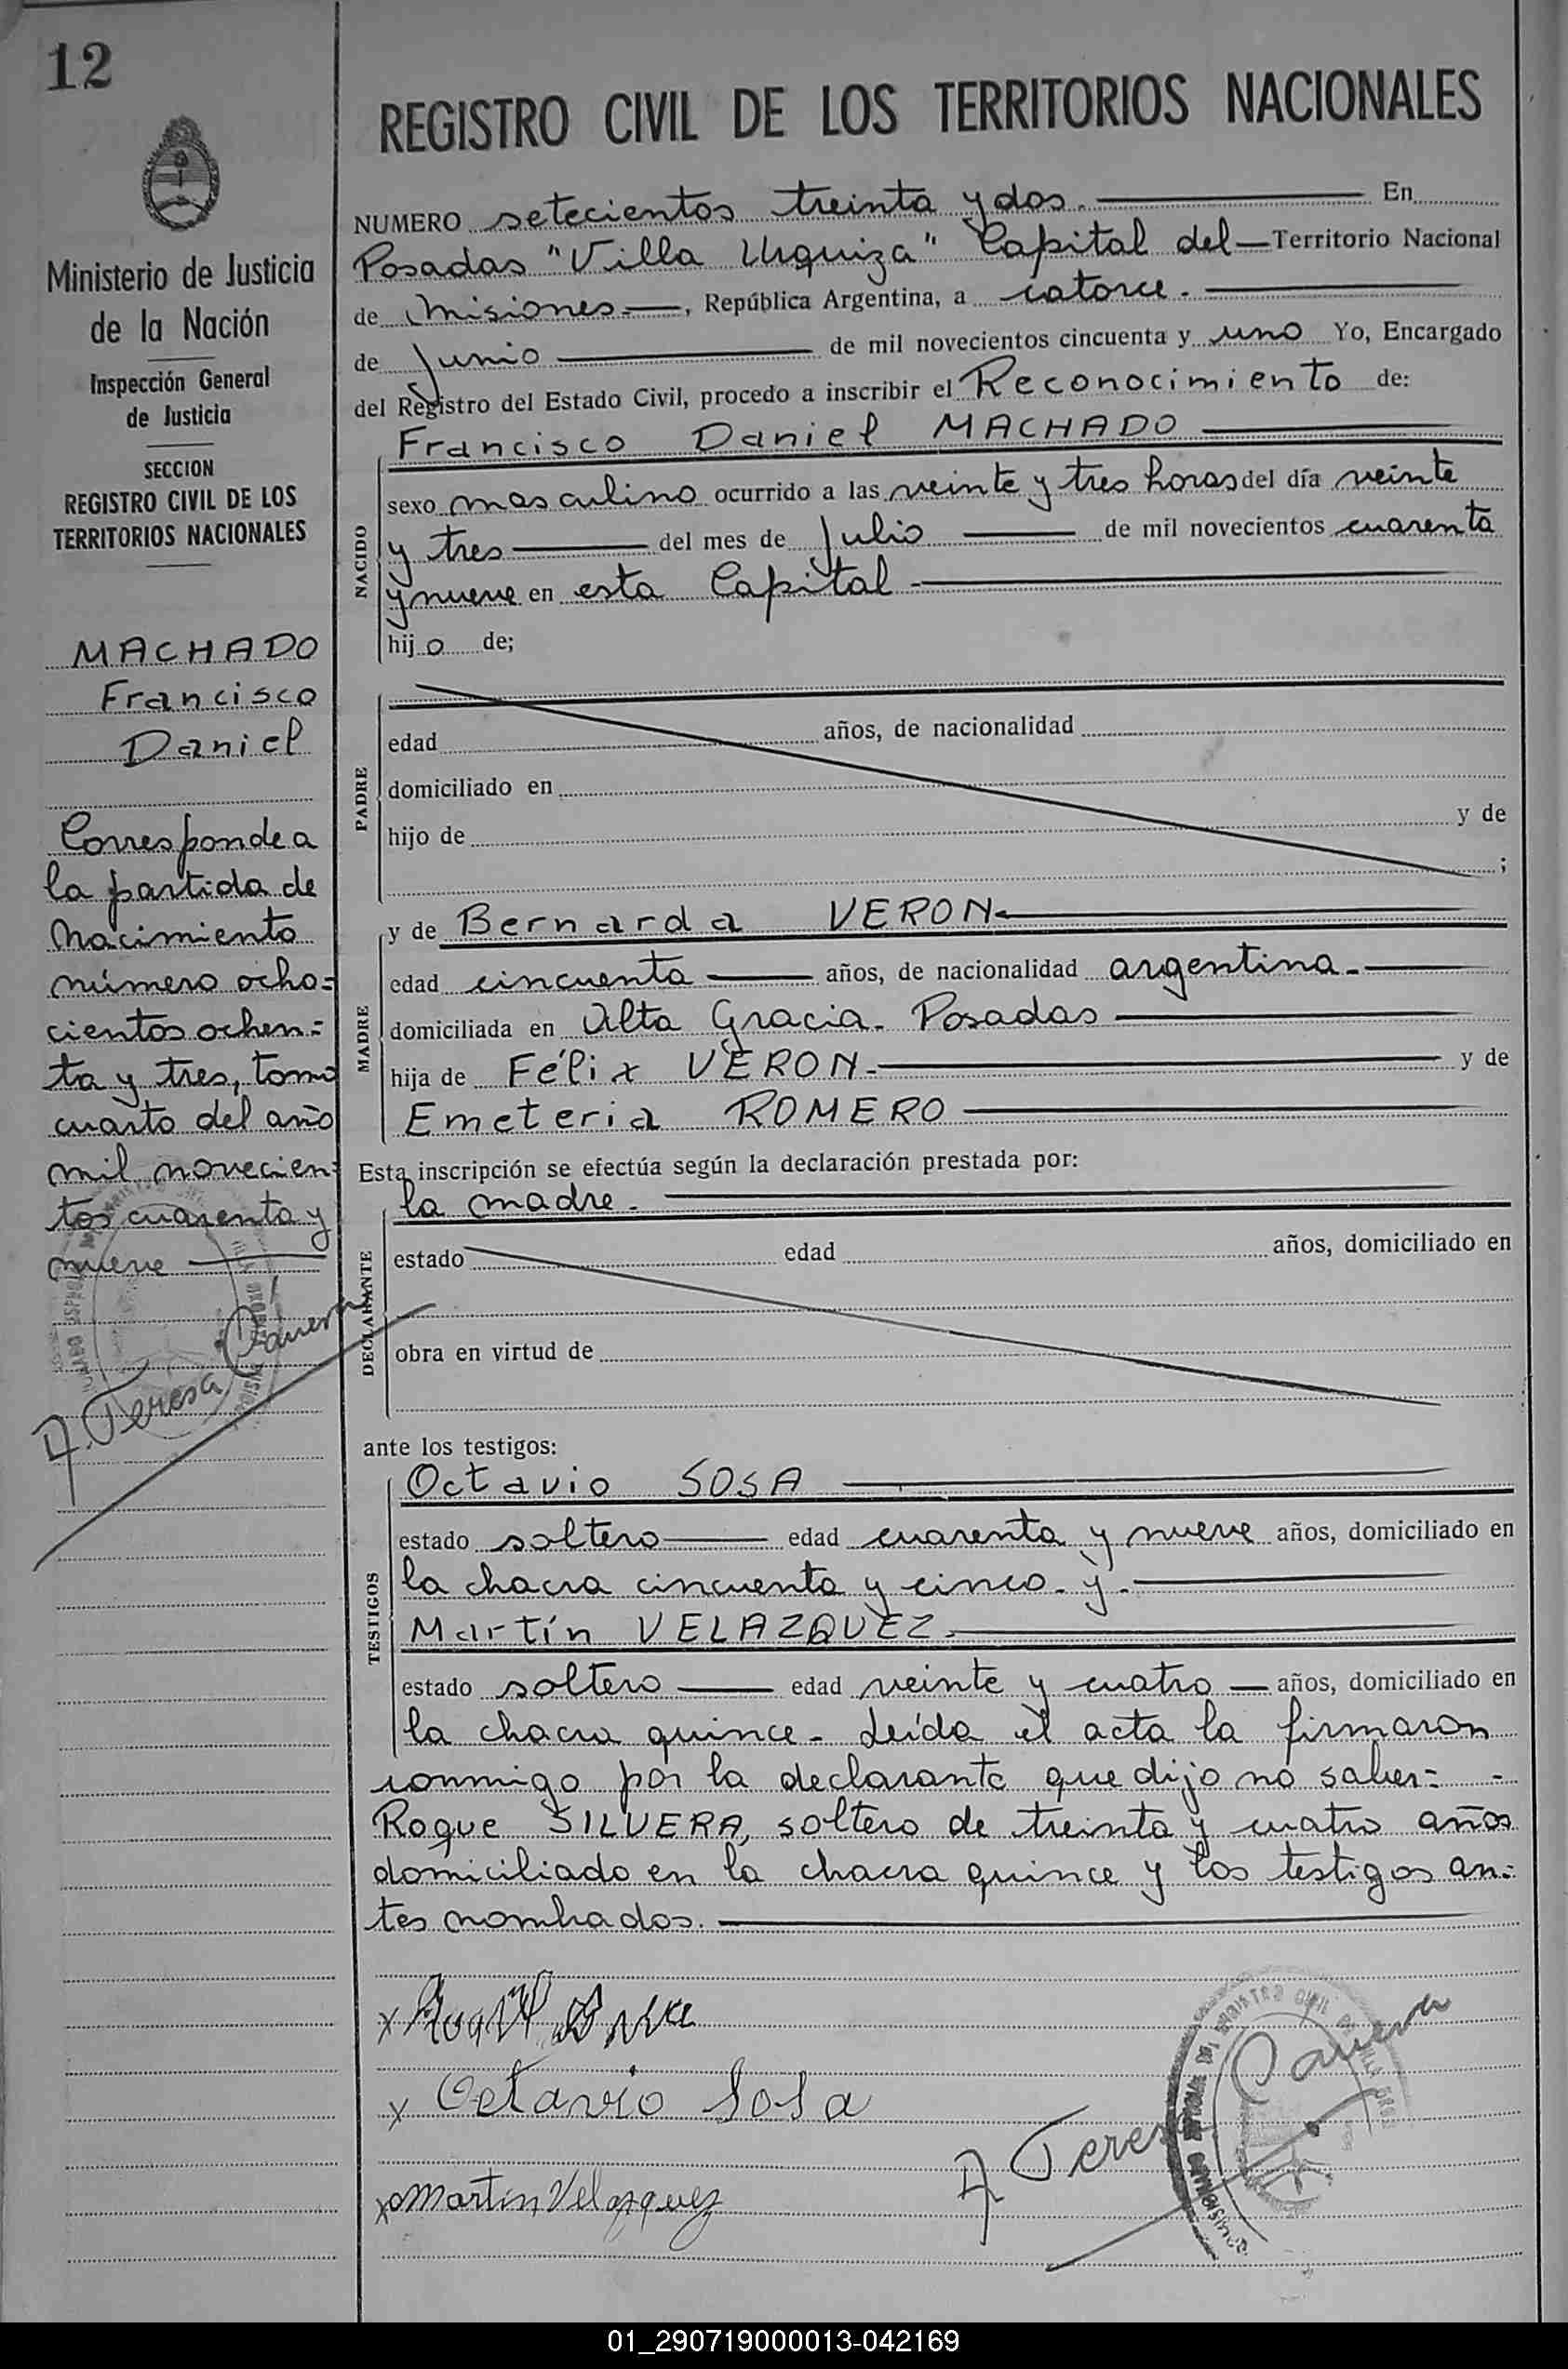 12
Ministerio de Justicia
de la Nación
Inspección General
de Justicia
SECCION
REGISTRO CIVIL DE LOS
TERRITORIOS NACIONALES
MACHADO
Francisco
Daniel
Corresponde a
la partida de
Nacimiento
número ocho=
cientos ochen=
ta y tres, tomo
cuarto del año
mil novecien=
tos cuarenta y
nueve
A. Teresa
REGISTRO CIVIL DE LOS TERRITORIOS NACIONALES
NUMERO setecientos treinta y dos. En
Posadas "Villa Urquiza" Capital del Territorio Nacional
de Misiones, República Argentina, a catorce.
de Junio de mil novecientos cincuenta y uno Yo, Encargado
del Registro del Estado Civil, procedo a inscribir el Reconocimiento de:
Francisco Daniel MACHADO
NACIDO
sexo masculino ocurrido a las veinte y tres horas del día veinte
y tres del mes de Julio de mil novecientos cuarenta
y nueve en esta Capital
hijo de;
PADRE
edad años, de nacionalidad
domiciliado en
hijo de y de
;
MADRE
y de Bernarda VERON.
edad cincuenta años, de nacionalidad argentina.
domiciliada en Alta Gracia. Posadas
hija de Félix VERON. y de
Emeteria ROMERO
Esta inscripción se efectúa según la declaración prestada por:
la madre.
DECLARANTE
estado edad años, domiciliado en
obra en virtud de
ante los testigos:
TESTIGOS
Octavio SOSA
estado soltero edad cuarenta y nueve años, domiciliado en
la chacra cincuenta y cinco. y.
Martín VELAZQUEZ.
estado soltero edad veinte y cuatro años, domiciliado en
la chacra quince. Leída el acta la firmaron
conmigo por la declarante que dijo no saber=
Roque SILVERA, soltero de treinta y cuatro años
domiciliado en la chacra quince y los testigos an=
tes nombrados.
x
x Octavio Sosa
A Teresa
x Martin Velazquez
01_290719000013-042169